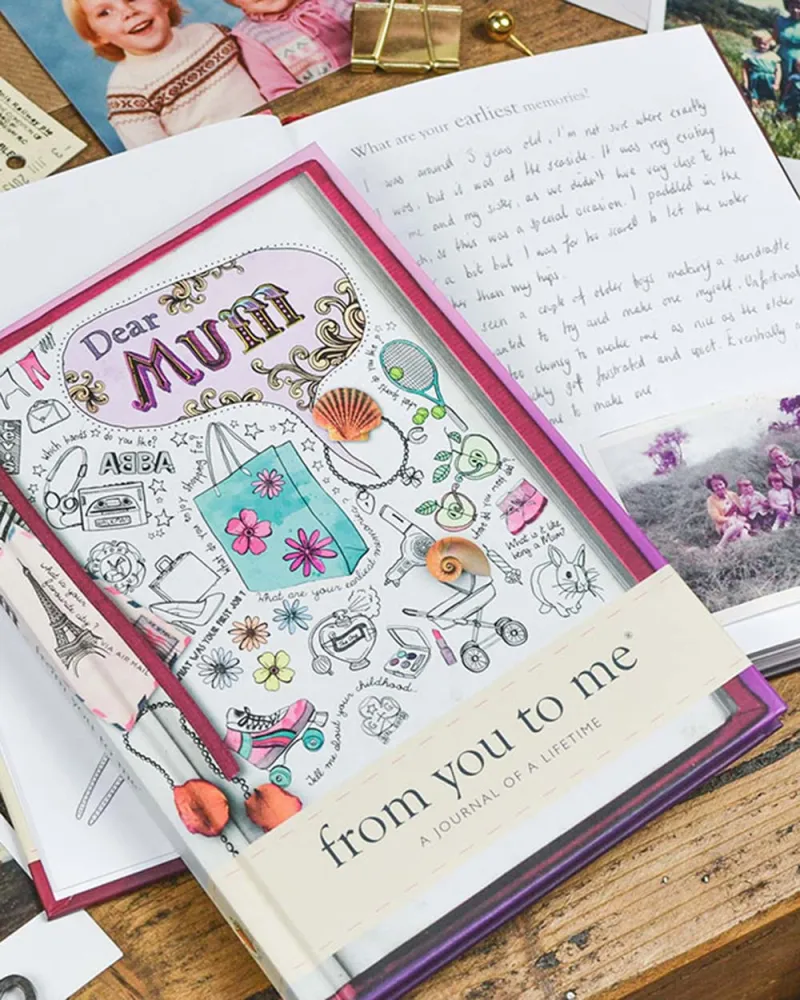 What are your earliest memories?
I was around 3 years old, I'm not sure where exactly
I was, but it was at the seaside. It was very exciting
me and my sister, as we didn't live very close to the
so this was a special occasion. I paddled in the
a bit but I was far too scared to let the water
than my hips.
seen a couple of older boys making a sandcastle
to try and make one myself. Unfortunat
too clumsy to make one as nice as the older
got frustrated and upset. Eventually
me to make one
Dear
Mum
which bands do you like?
ABBA
What are your earliest memories?
What is it like
being a Mum?
WHAT WAS YOUR FIRST JOB?
what is your
favourite city?
VIA AIR MAIL
Tell me about your childhood..
from you to me®
A JOURNAL OF A LIFETIME